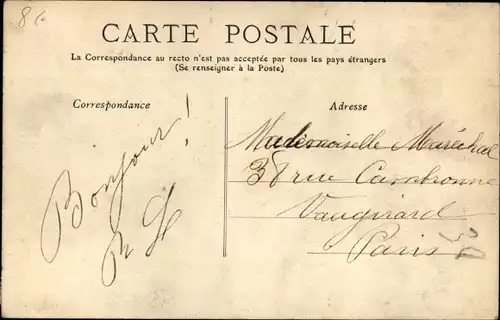 86
CARTE POSTALE
La Correspondance au recto n'est pas acceptée par tous les pays étrangers
(Se renseigner à la Poste)
Correspondance
Adresse
Bonjour !
Mademoiselle Maréchal
38 rue Cambronne
Vaugirard
Paris